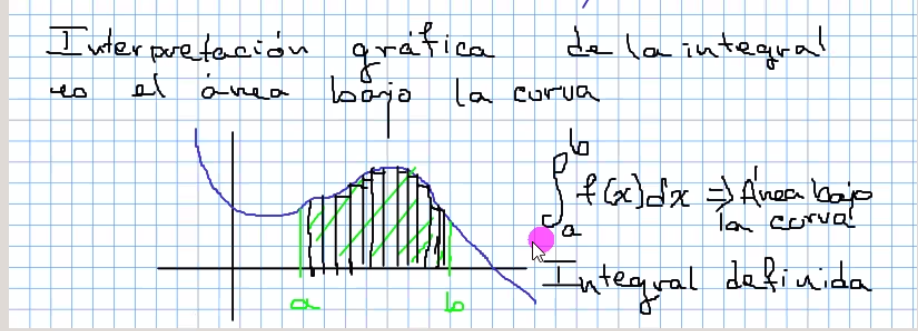 Interpretación gráfica de la integral
es el área bajo la curva
∫ₐᵇ f(x)dx ⇒ Área bajo
la curva
Integral definida
a b